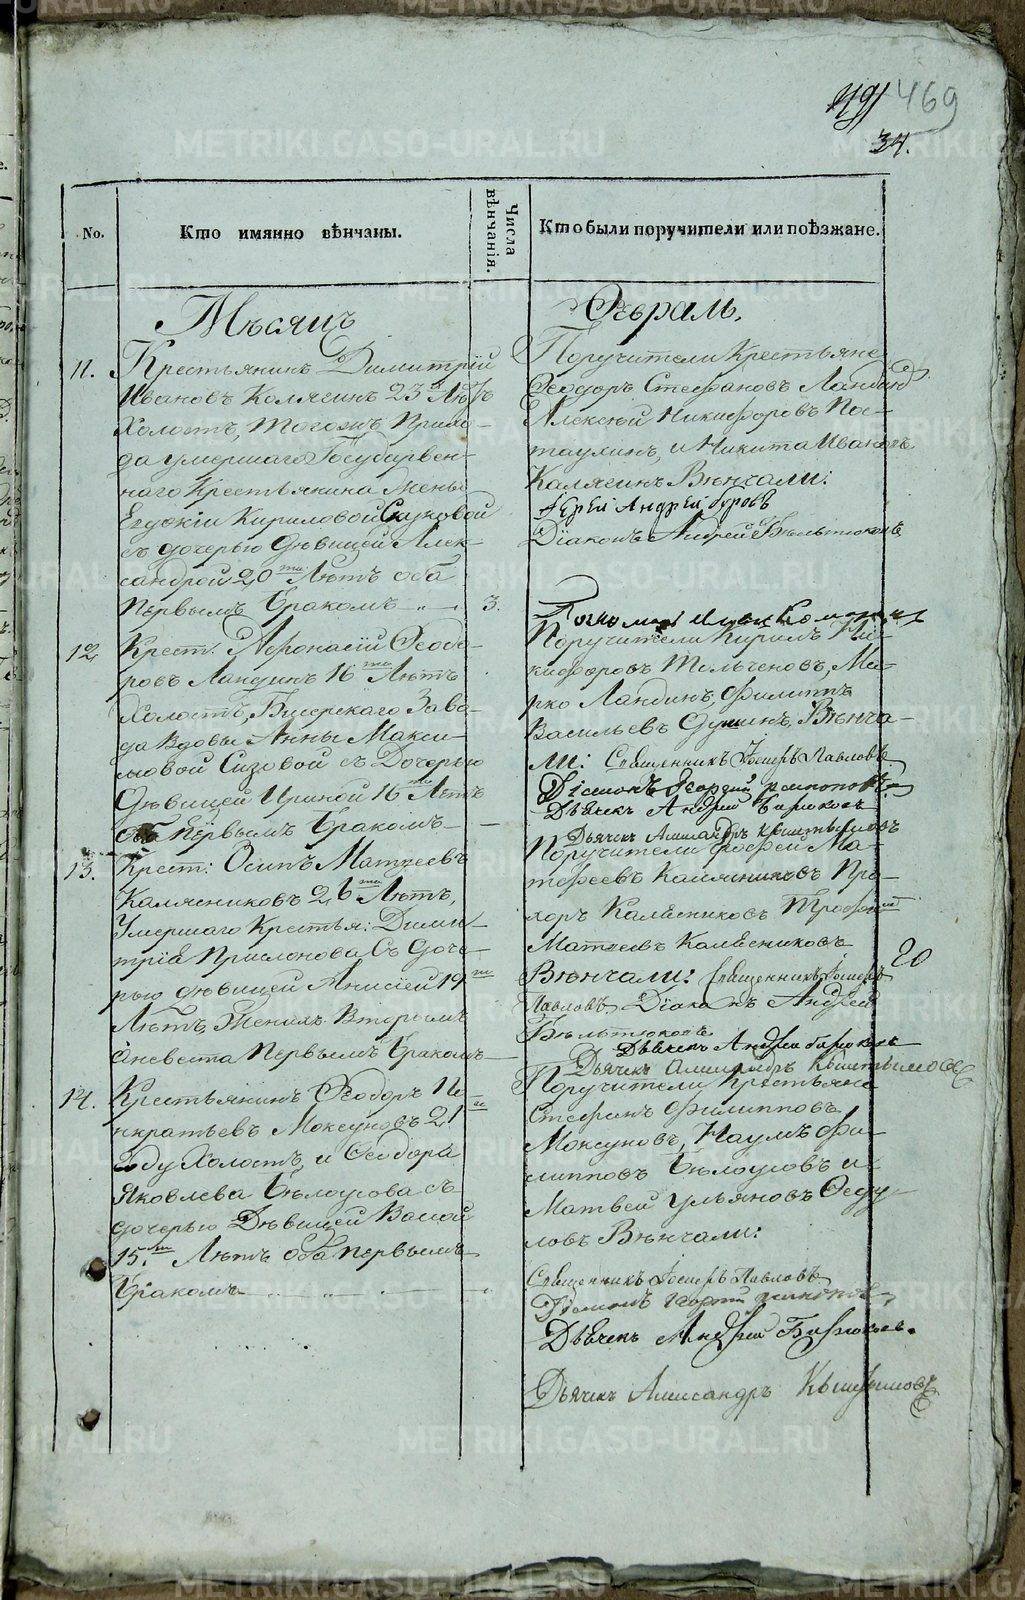 469
34.
No.
Кто имянно вѣнчаны.
Числа вѣнчанія.
Кто были поручители или поѣзжане.
Мѣсяцъ
Февраль.
11.
Крестьянинъ Димитрій
Ивановъ Колягинъ 23 Лѣтъ
Холостъ, тогожъ Прихо-
да умершаго Государствен-
наго Крестьянина Жены
Евдокіи Кириловой
съ дочерью дѣвицей Алек-
сандрой 20 ти Лѣтъ оба
первымъ бракомъ
3.
Поручители Крестьяне
Ѳеодоръ Стефановъ Ландинъ
Алексѣй Никифоровъ Пос-
таулинъ, и Никита Ивановъ
Калягинъ Вѣнчали:
Іерей Андрей
Діаконъ Андрей Бѣльтюковъ
12
Крест. Афонасій Ѳеодо-
ровъ Ландинъ 16 ти Лѣтъ
Холостъ, Бисерскаго Заво-
да Вдовы Анны Макси-
мовой Сизовой съ Дочерью
дѣвицей Ириной 16 Лѣтъ
оба первымъ бракомъ
Поручители Кирилъ Ни-
кифоровъ Тельченовъ, Ма-
рко Ландинъ, Филиппъ
Васильевъ Вѣнча-
ли: Священникъ Іосифъ Павловъ
Діаконъ Георгій
Дьячекъ Андрей Бирюковъ
Дьячекъ Александръ Кыштымовъ
13.
Крест: Осипъ Матвеевъ
Калясниковъ 26 ти Лѣтъ,
Умершаго Крестья: Дими-
трія Прислонова съ доче-
рью дѣвицей Анисіей 19 ти
Лѣтъ, Женихъ Вторымъ
а невеста первымъ бракомъ
Поручители Ма-
тфеевъ Калясниковъ Про-
хоръ Калѣсниковъ Трофимъ
Матвеевъ Калѣсниковъ
Вѣнчали: Священникъ Іосифъ
Павловъ Діаконъ Андрей
Бѣльтюковъ
Дьячекъ Андрей Бирюковъ
Дьячекъ Александръ Кыштымовъ
20
14.
Крестьянинъ Ѳеодоръ Па-
нкратьевъ Моксуновъ 21
году Холостъ, и Ѳеодора
Яковлева Бѣлоусова съ
дочерью Дѣвицей Васой
15. ти Лѣтъ оба первымъ
бракомъ
Поручители Крестьяне
Стефанъ Филипповъ
Моксуновъ, Наумъ Фи-
липповъ Бѣлоусовъ и
Матвей Ульяновъ Ѳеду-
ловъ Вѣнчали:
Священникъ Іосифъ Павловъ
Діаконъ Георгій
Дьячекъ Андрей Бирюковъ.
Дьячекъ Александръ Кыштымовъ
METRIKI.GASO-URAL.RU